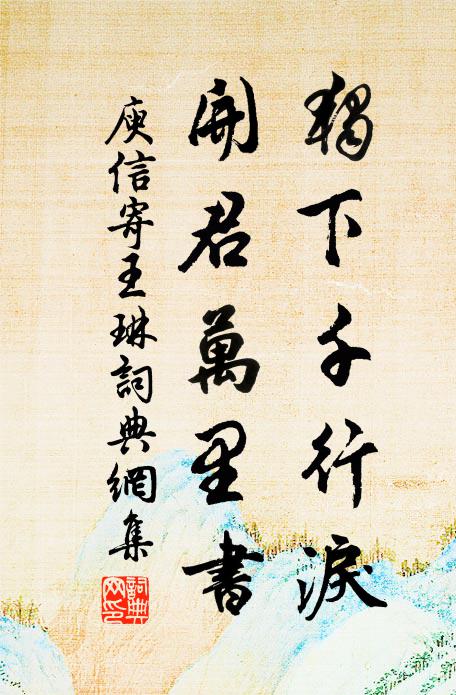 獨下千行淚
開君萬里書
庾信寄王琳詞典網集
詞典
网印